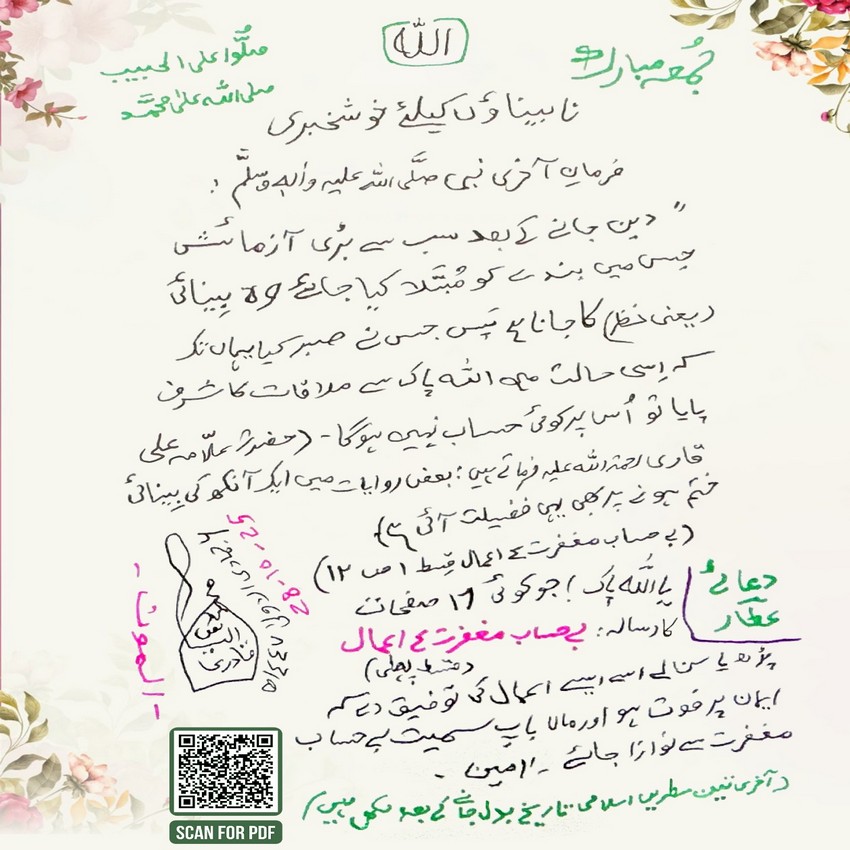 اللہ
جُمُعہ مبارک
صَلُّوا علی الحبیب
صلی اللہ علیٰ محمَّد
نابیناؤں کیلئے خوشخبری
فرمانِ آخری نبی صلَّی اللہ علیہ واٰلہٖ وسلَّم :
" دین جانے کے بعد سب سے بڑی آزمائش
جس میں بندے کو مُبْتَلا کیا جائے وہ بِینائی
(یعنی نظر) کا جانا ہے پَس جس نے صبر کیا یہاں تک
کہ اِسی حالت میں اللہ پاک سے ملاقات کا شرف
پایا تو اُس پر کوئی حساب نہیں ہوگا - (حضرت علّامہ علی
قاری رحمۃ اللہ علیہ فرماتے ہیں : بعض روایات میں ایک آنکھ کی بِینائی
ختم ہونے پر بھی یہی فضیلت آئی ہے)
(بے حساب مغفرت کے اعمال قِسط ۱ ص ۱۲)
دعائے عطّار
یا اللہ پاک ! جو کوئی ۱۷ صفحات
کا رسالہ : بے حساب مغفرت کے اعمال
(قسط پہلی)
پڑھ یا سن لے اسے ایسے اعمال کی توفیق دے کہ
ایمان پر فوت ہو اور ماں باپ سمیت بے حساب
مغفرت سے نوازا جائے - اٰمین -
(آخری تین سطریں اسلامی تاریخ بدل جانے کے بعد لکھی ہیں)
28-10-25
الموت
SCAN FOR PDF